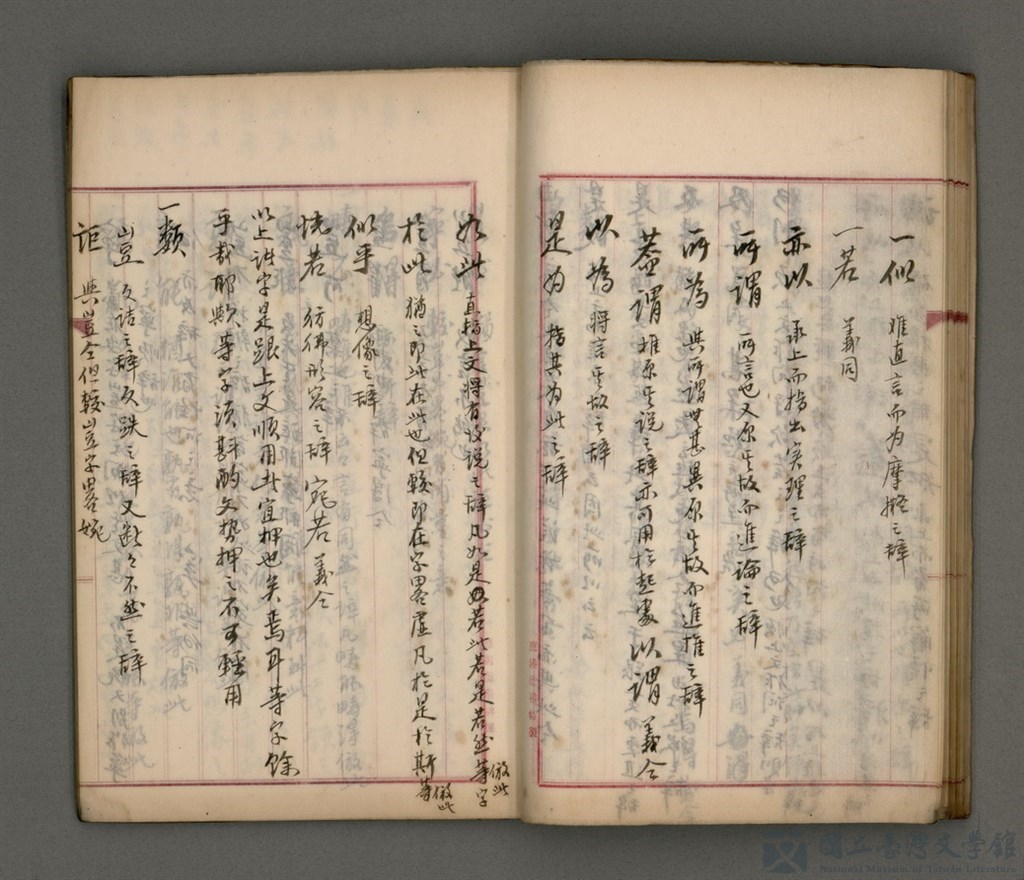 一似 难直言而为摩擬之辞
一若 義同
亦以 承上而指出实理之辞
所謂 所言也又原其故而進論之辞
所為 與所謂無甚異原其故而進推之辞
蓋謂 推原其说之辞亦可用於起處 以謂 義仝
以為 將言其故之辞
是为 指其为此之辞
如此 直指上文將有後说之辞凡如是如若此若是若然等字倣此
於此 猶之即此在此也但較即在字畧虛凡於是於斯等倣此
似乎 想像之辞
恍若 彷彿形容之辞 宛若 義仝
以上诸字是跟上文順用此宜押也矣焉耳等字餘
乎哉耶歟等字須斟酌文勢押之不可輕用
一類
豈 反詰之辞反跌之辞又斷々不然之辞
詎 與豈仝但較豈字畧婉
國立臺灣文學館
National Museum of Taiwan Literature